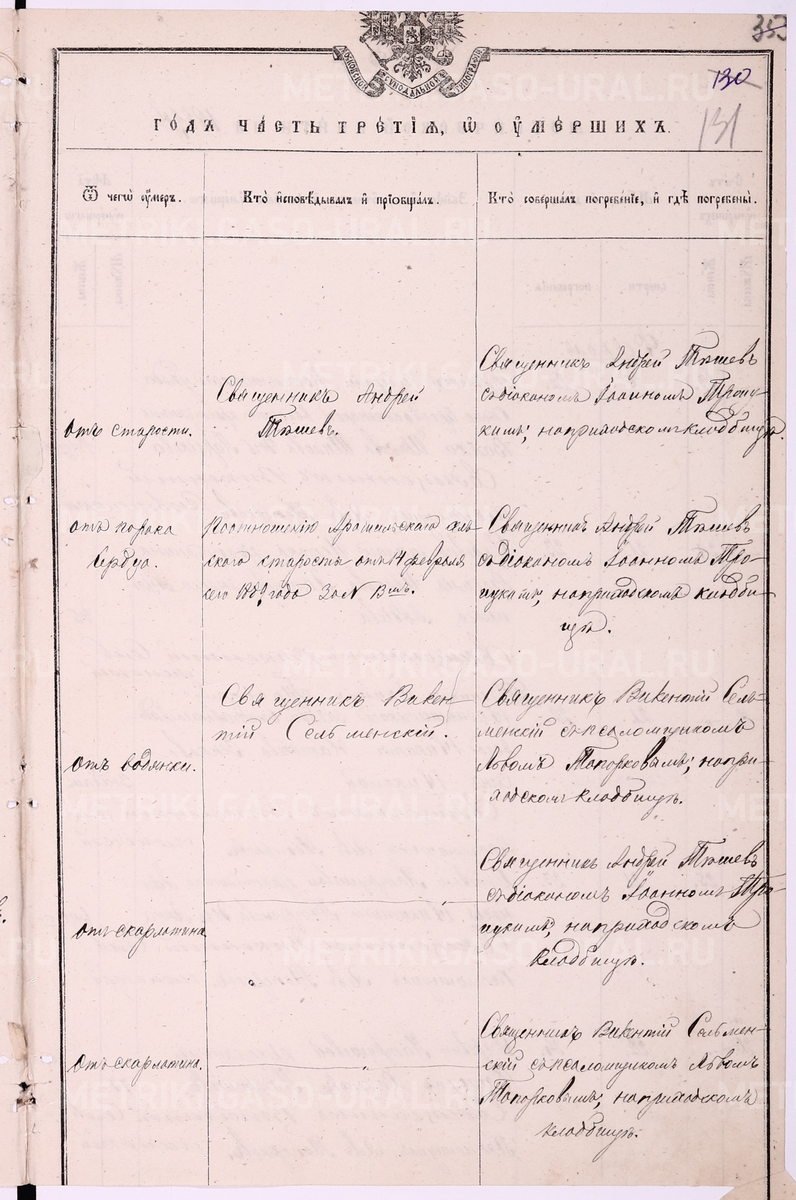 130
131
МОСКОВСКОЙ СѴНОДАЛЬНОЙ ТИПОГРАФІИ
ГОДЪ ЧАСТЬ ТРЕТІЯ, Ѡ ОУМЕРШИХЪ.
Ѿ чегѡ оумеръ.
Кто исповѣдывалъ и пріобщалъ.
Кто совершалъ погребеніе, и гдѣ погребены.
отъ старости.
Священникъ Андрей
Тѣшевъ.
Священникъ Андрей Тѣшевъ
съ діакономъ Іоанномъ Троиц-
кимъ; на приходскомъ кладбищѣ.
отъ порока
сердца.
По отношенію Арашильскаго сель-
скаго старосты отъ 14 февраля
сего 1889 года за №
Священникъ Андрей Тѣшевъ
съ діакономъ Іоанномъ Тро-
ицкимъ; на приходскомъ кладби-
щѣ.
отъ водянки.
Священникъ Викен-
тій Сельменскій.
Священникъ Викентій Сель-
менскій съ псаломщикомъ
Львомъ Топорковымъ; на при-
ходскомъ кладбищѣ.
отъ скарлатина
Священникъ Андрей Тѣшевъ
съ діакономъ Іоанномъ Тро-
ицкимъ; на приходскомъ
кладбищѣ.
отъ скарлатина.
Священникъ Викентій Сельмен-
скій съ псаломщикомъ Львомъ
Топорковымъ; на приходскомъ
кладбищѣ.
METRIKI.GASO-URAL.RU